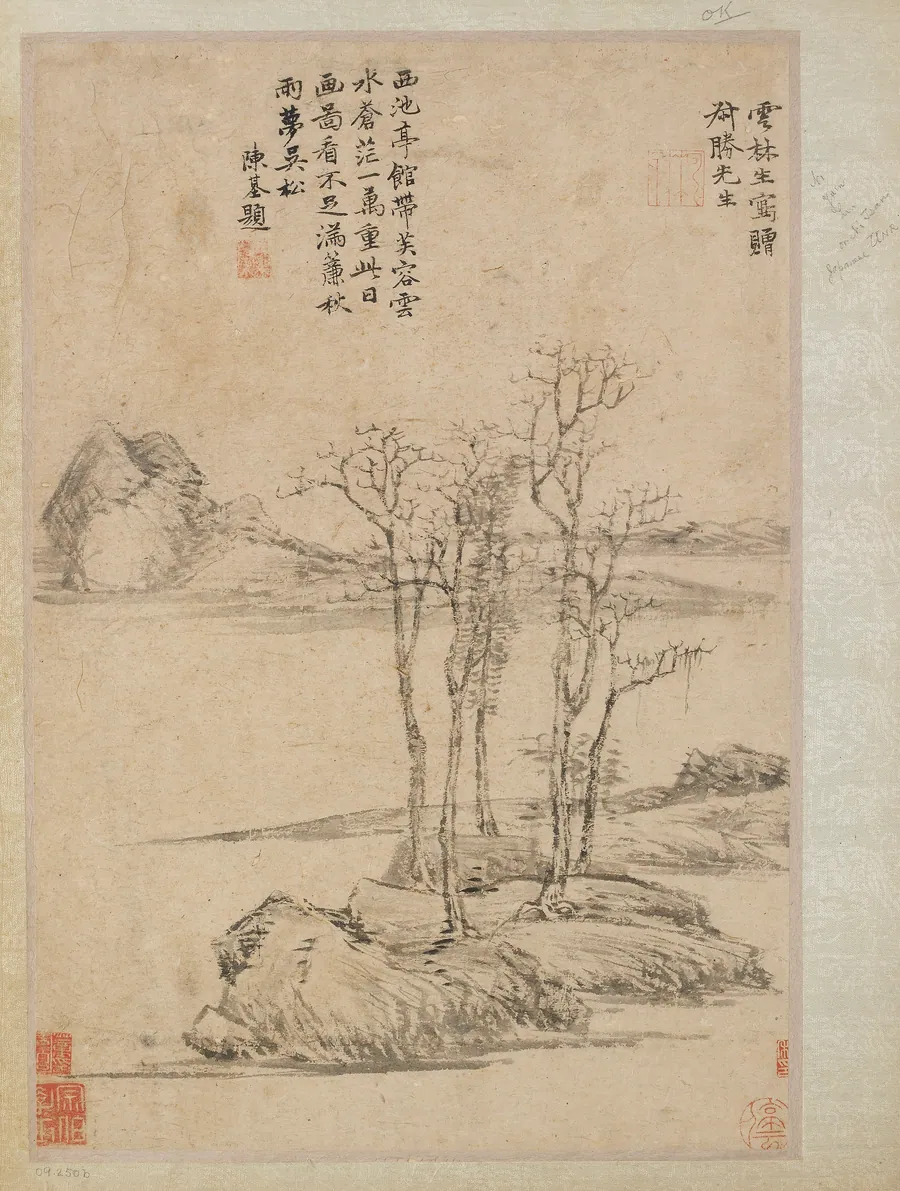 雲林生寫贈
勝先生
西池亭館帶芙容雲
水蒼茫一萬重此日
画啚看不足滿簾秋
雨夢吳松
陳基題
OK
09.250b